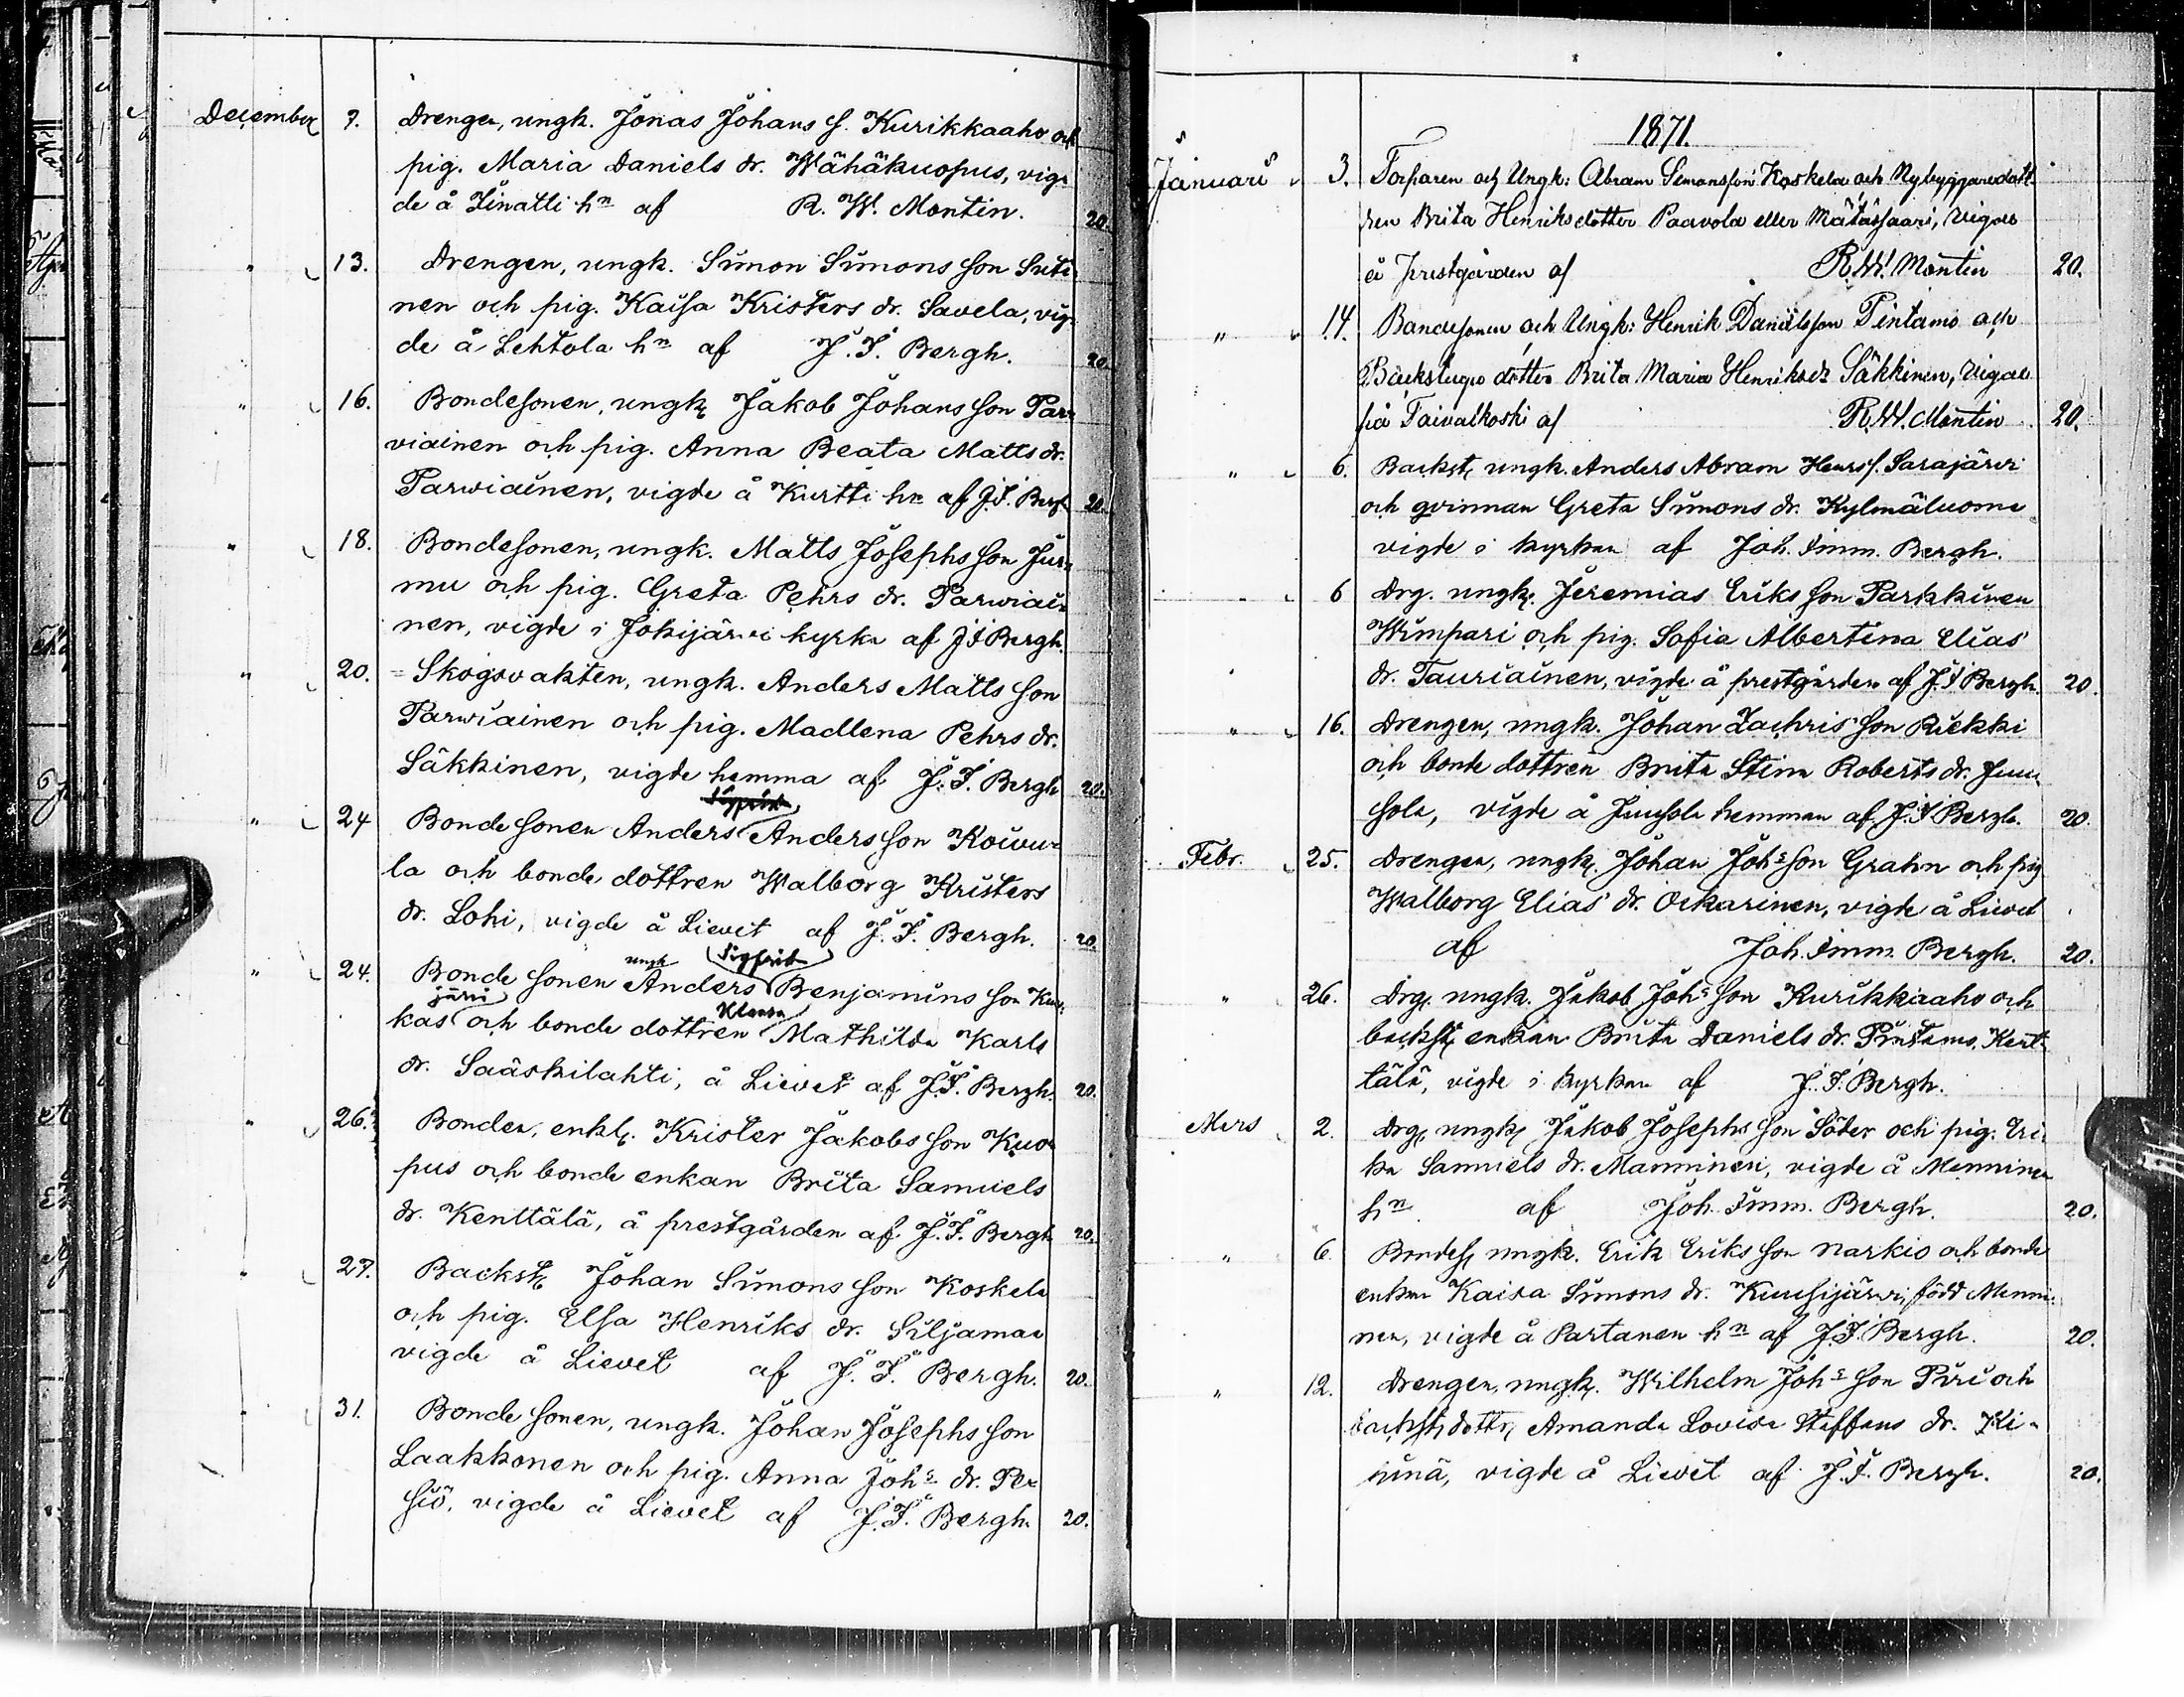 December 7. Drengen, ungk. Jonas Johans s. Kurikkaaho och
pig. Maria Daniels dr. Wähäkuopus, vig-
de å Jinatti hn af R. W. Montin. 20.
" 13. Drengen, ungk. Simon Simons son Suti-
nen och pig. Kaisa Kristers dr. Savela, vig-
de å Lehtola hn af J. I. Bergh. 20.
" 16. Bondesonen, ungk. Jakob Johans son Par-
viainen och pig. Anna Beata Matts dr.
Parwiainen, vigde å Kurtti hn af J. I. Bergh 20.
" 18. Bondesonen, ungk. Matts Josephs son Jur-
mu och pig. Greta Pehrs dr. Parwiai-
nen, vigde i Jokijärvi kyrka af J I Bergh.
" 20. Skogsvakten, ungk. Anders Matts son
Parwiainen och pig. Madlena Pehrs dr.
Säkkinen, vigde hemma af J. I. Bergh 20.
" 24 Bonde sonen Anders Anders son Kouvu-
la och bonde dottren Walborg Kristers
dr. Lohi, vigde å Lievet af J. I. Bergh. 20.
ungk Sigfrid
" 24. Bonde sonen Anders Benjamins son Kou-
järvi Klara
kas och bonde dottren Mathilda Karls
dr. Sääskilahti, å Lievet af J. I. Bergh. 20.
" 26. Bonden, enkl. Krister Jakobs son Kuo-
pus och bonde enkan Brita Samuels
dr. Kenttälä, å prestgården af J. I. Bergh 20.
" 27. Backst. Johan Simons son Koskela
och pig. Elsa Henriks dr. Siljamaa
vigde å Lievet af J. I. Bergh. 20.
" 31. Bonde sonen, ungk. Johan Josephs son
Laakkonen och pig. Anna Johs dr. Per-
siö, vigde å Lievet af J. I. Bergh. 20.
1871.
Januari 3. Torparen och Ungk: Abram Simonsson Koskela och Nybyggaredott-
ren Brita Henriksdotter Paavola eller Mätässaari, vigde
å Prestgården af R. W. Montin 20.
" 14. Bondesonen och Ungk: Henrik Danielsson Pintamo och
Backstugu dotter Brita Maria Henriksdr Säkkinen, vigde
på Taivalkoski af R. W. Montin 20.
" 6. Backst. ungk. Anders Abram Henrs s. Sarajärvi
och qvinnan Greta Simons dr. Kylmäluoma
vigde i kyrkan af Joh. Imm. Bergh.
" 6 Drg. ungk. Jeremias Eriks son Parkkinen
Wimpari och pig. Sofia Albertina Elias
dr. Tauriainen, vigde å prestgården af J. I Bergh. 20.
" 16. Drengen, ungk. Johan Zachris son Riekki
och bonde dottren Brita Stina Roberts dr. Juu-
sola, vigde å Juusola hemman af J. I Bergh. 20.
Febr. 25. Drengen, ungk. Johan Johs son Grahn och pig
Walborg Elias dr. Oikarinen, vigde å Lievet
af Joh. Imm. Bergh. 20.
" 26. Drg. ungk. Jakob Johs son Kurikkaaho och
backst. enkan Brita Daniels dr. Pintamo, Kent-
tälä, vigde i kyrkan af J. I. Bergh.
Mars 2. Drg. ungk. Jakob Josephs son Söder och pig. Eri-
ka Samuels dr. Manninen, vigde å Manninen
hn af Joh. Imm. Bergh. 20.
" 6. Bondes. ungk. Erik Eriks son Narkio och bonde
enkan Kaisa Simons dr. Kuusijärvi, född Manni-
nen, vigde å Partanen hn af J. I. Bergh. 20.
" 12. Drengen, ungk. Wilhelm Johs son Piri och
backst. dottr. Amanda Lovisa Staffans dr. Ki-
vigde å Lievet af J. I. Bergh. 20.